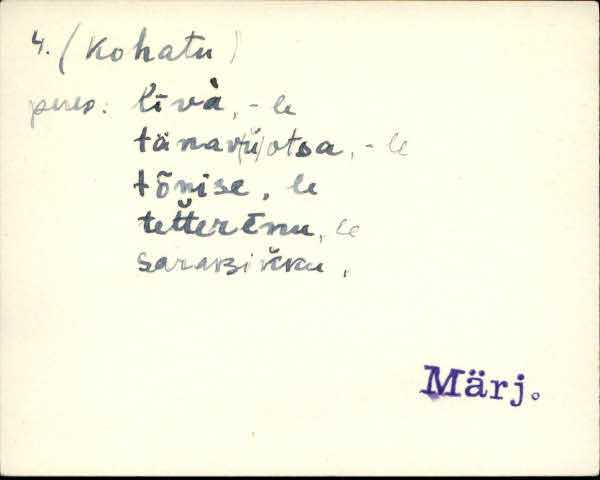 4. (Kohatu)
peres: līvà, -le
tänav(ü)otsa, -le
tõnise, le
tetterēnu, le
saraksikku,
Märj.